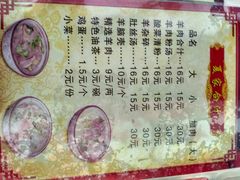 夏家合
品名 大 小 加肉(大)
羊肉合汁……16元 15元 30元
羊肉粉汤……16元 15元 30元
酸菜清粉……16元 15元
羊杂碎……16元 15元 30元
肚丝汤……16元 15元 30元
羊脑壳……10元/个
精选羊肉…9元/两
特色油茶…3元/碗
鸡蛋……1.5元/个
小菜……2元/份